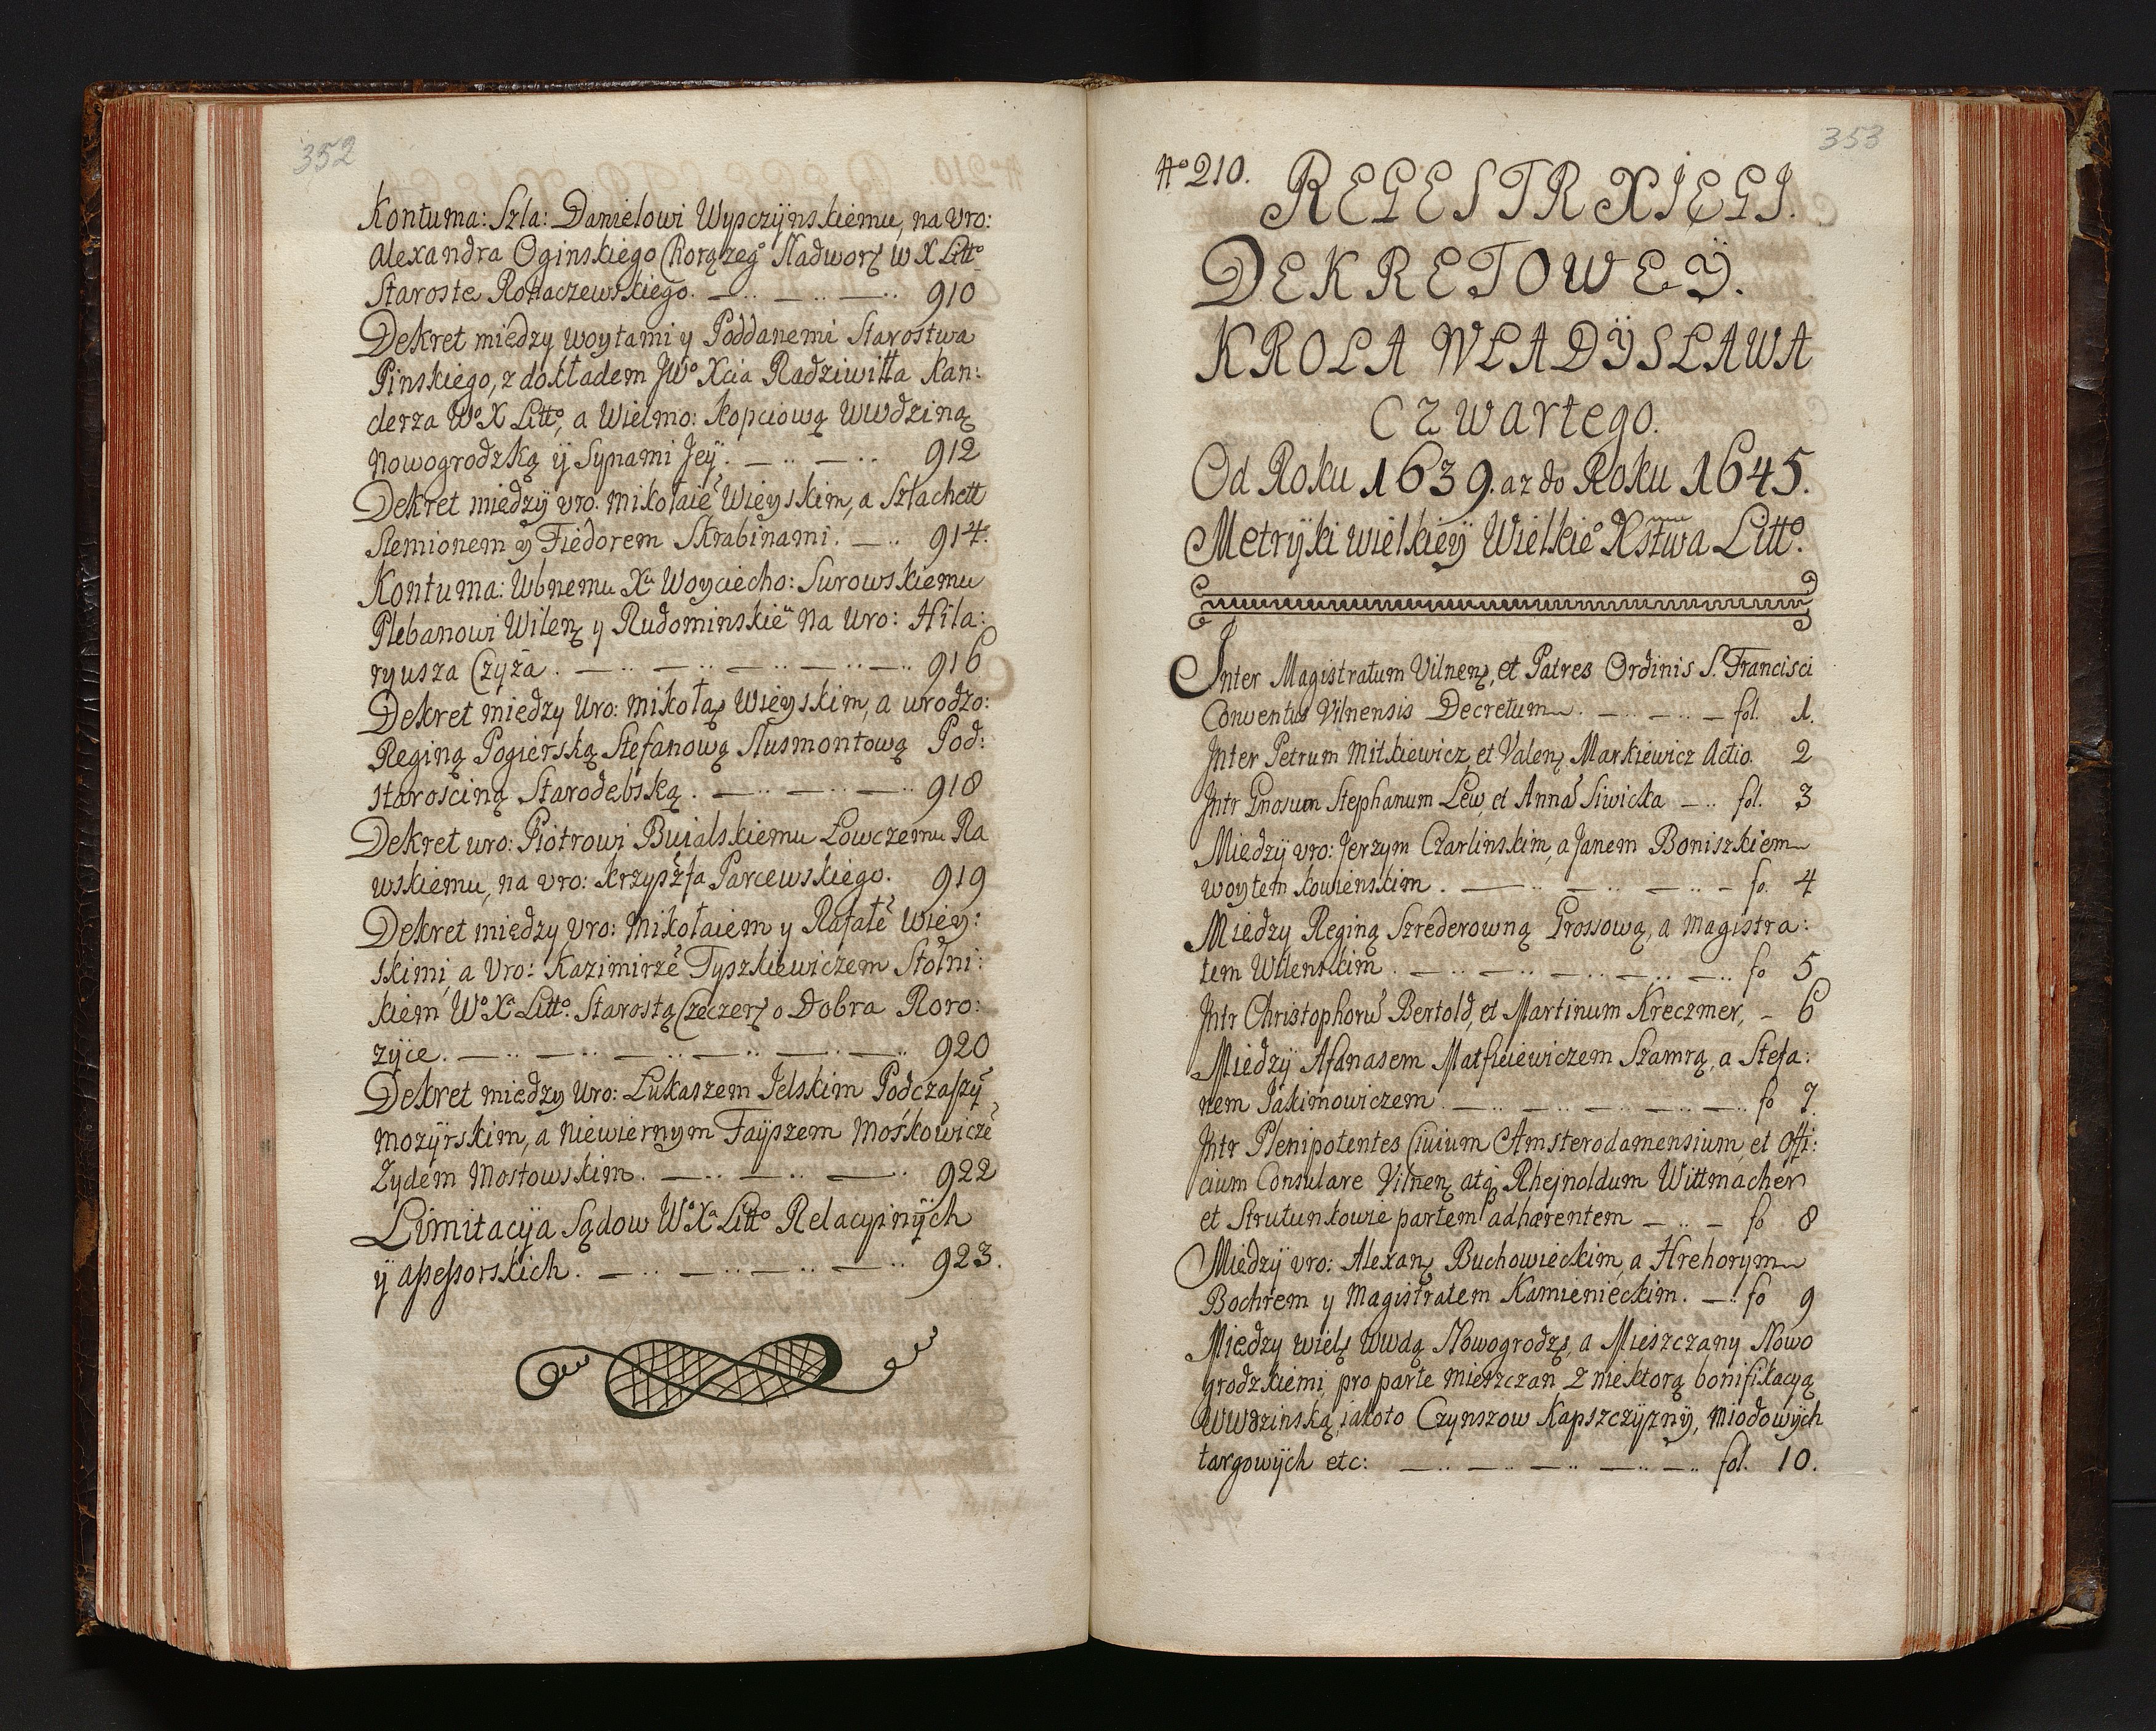 352
Kontuma: Szla: Danielowi Wypczÿnskiemu, na Vro:
Alexandra Oginskiego Chorązeg° Nadworꝫ w X Litt°
Staroste Rohaczewskiego. 910
Dekret miedzy woytami y Poddanemi Starostwa
Pinskiego, z dokładem JW° Xcia Radziwiłła Kan:
clerza W° X Litt°, a Wielmo: Kopciową Wwdziną
Nowogrodzką ÿ Synami Jeÿ. 912
Dekret miedzÿ vro. Mikołaiē Wieyskim, a Szlachett
Siemionem y Fiedorem Skrabinami. 914.
Kontuma: Wbnemu Xu Woyciecho: Surowskiemu
Plebanowi Wilenꝫ y Rudominskiē Na Uro: Hila:
ryusza Czyża. 916
Dekret miedzy Uro: Mikołaꝫ Wieyskim, a urodzo:
Reginą Pogierską Stefanową Slusmontową Pod:
starosciną Starodebską. 918
Dekret uro: Piotrowi Buialskiemu Łowczemu Ra
wskiemu, na vro: Krzypsztfa Parcewskiego. 919
Dekret miedzy vro: Mikołaiem y Rafałē Wiey:
skimi, a Vro: Kazimirzē Tyszkiewiczem Stolni:
kiem W° Xa Litt°. Starostą Czeczerꝫ o Dobra Roro:
zÿce. 920
Dekret miedzy Uro: Lukaszem Jelskim Podczaszÿ
Mozÿrskim, a Niewiernym Faÿszem Mośkowiczē
Zydem Mostowskim. 922
Limitacÿa Sądow W° Xa Litt° Relacyinÿch
ÿ assessorskich. 923.
353
N° 210. REGESTR XIĘGI.
DEKRETOWEŸ.
KROLA WŁADŸSŁAWA
Czwartego.
Od Roku 1639. az do Roku 1645.
Metrÿki wielkieÿ Wielkie° Xstwa Litt°.
Inter Magistratum Vilnenꝫ, et Patres Ordinis S. Francisci
Conventus Vilnensis Decretum. fol. 1.
Inter Petrum Mitkiewicz, et Valenꝫ Markiewicz Actio. 2
Intr Gnosum Stephanum Lew, et Annā Siwicka fol. 3
Miedzÿ vro: Jerzym Czarlinskim, a Janem Boniszkiem
woytem kowienskim. fo. 4
Miedzy Reginą Szrederowną Grossową, a Magistra:
tem Wilenskim. fo 5
Intr Christophorū Bertold, et Martinum Kreczmer, 6
Miedzÿ Afanasem Matfieiewiczem Szamrą, a Stefa:
nem Jakimowiczem. fo 7.
Intr Plenipotentes Civium Amsterodamensium, et Offi:
cium Consulare Vilnenꝫ atq Rhejnoldum Wittmacher
et Strutunkowie partem adhærentem fo 8
Miedzÿ vro: Alexanꝫ Buchowieckim, a Hrehorym
Bochrem y Magistratem Kamienieckim. fo 9
Miedzy wielꝫ Wwdą Nowogrodzꝫ, a Mieszczany Nowo
grodzkiemi, pro parte mieszczan, z niektorą bonifikacyą
Wwdzinską, iakoto Czynszow Kapszczÿznÿ, Miodowÿch
targowÿch etc: fol. 10.